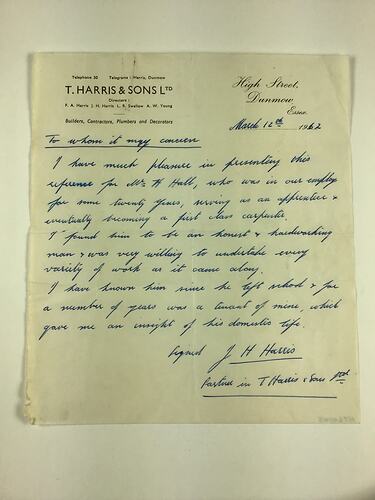 Telephone 30 Telegrams: Harris, Dunmow
T. HARRIS & SONS LTD
Directors:
F. A. Harris J. H. Harris L. R. Swallow A. W. Young
Builders, Contractors, Plumbers and Decorators
High Street,
Dunmow
Essex.
March 12th 1962
To whom it may concern
I have much pleasure in presenting this
reference for Mr H Hall, who was in our employ
for some twenty years, serving as an apprentice &
eventually becoming a first class carpenter.
I found him to be an honest & hardworking
man & was very willing to undertake every
variety of work as it came along.
I have known him since he left school & for
a number of years was a tenant of mine, which
gave me an insight of his domestic life.
Signed J H Harris
Partner in T Harris & Sons Ltd